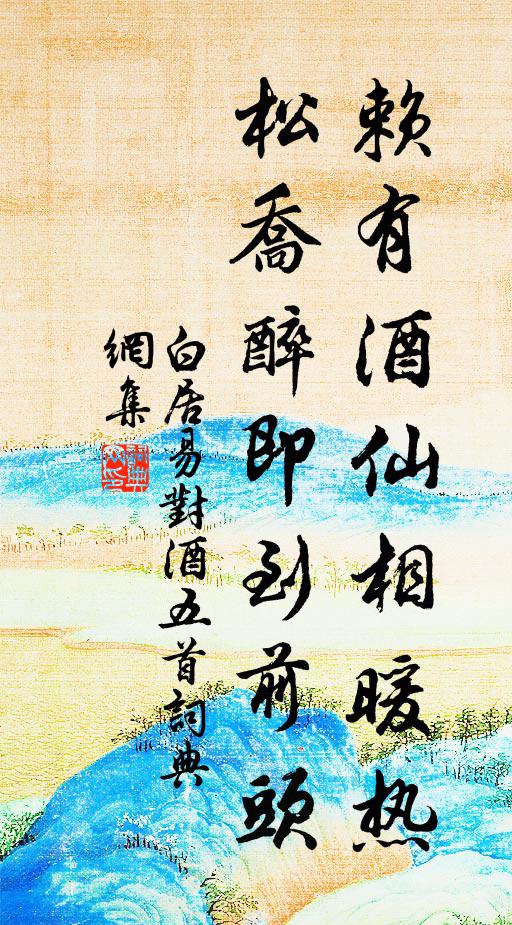 赖有酒仙相暖热
松喬醉即到前頭
白居易對酒五首詞典
網集